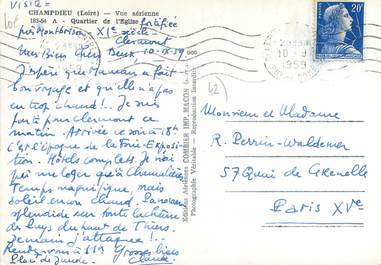 Visite =
CHAMPDIEU (Loire) - Vue aérienne
183-54 A - Quartier de l'Eglise fortifiée
près Montbrison XIe siècle
Clermont
Mes Bien Chers Deux, 10-IX-59
J'espère que Maman a fait
bon voyage et qu'elle n'a pas
eu trop chaud! Je suis
parti pour Clermont ce
matin. Arrivée ce soir à 18h
C'est l'époque de la Foire-Exposi-
tion. Hôtels complets. Je n'ai
pu me loger qu'à Chamalières
Temps magnifique, mais
soleil en chaud. Panorama
splendide sur toute la chaîne
des Puys du haut de Thiers.
Demain j'attaque!..
Rendez-vous à 119 Grosses bises
Place de Jaude. Claude
Editions Aériennes COMBIER IMP. MACON
Photographie Véritable - Reproduction Interdite
42
20F
10-9
1959
Monsieur et Madame
R. Perrin-Waldemer
57 Quai de Grenelle
Paris XVe